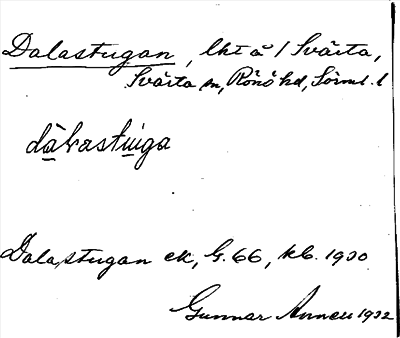 Dalastugan, lht å / Svärta,
Svärta sn, Rönö hd, Sörml. l
dàlastuga
Dalastugan ek, G. 66, kb. 1930
Gunnar Anneu 1932